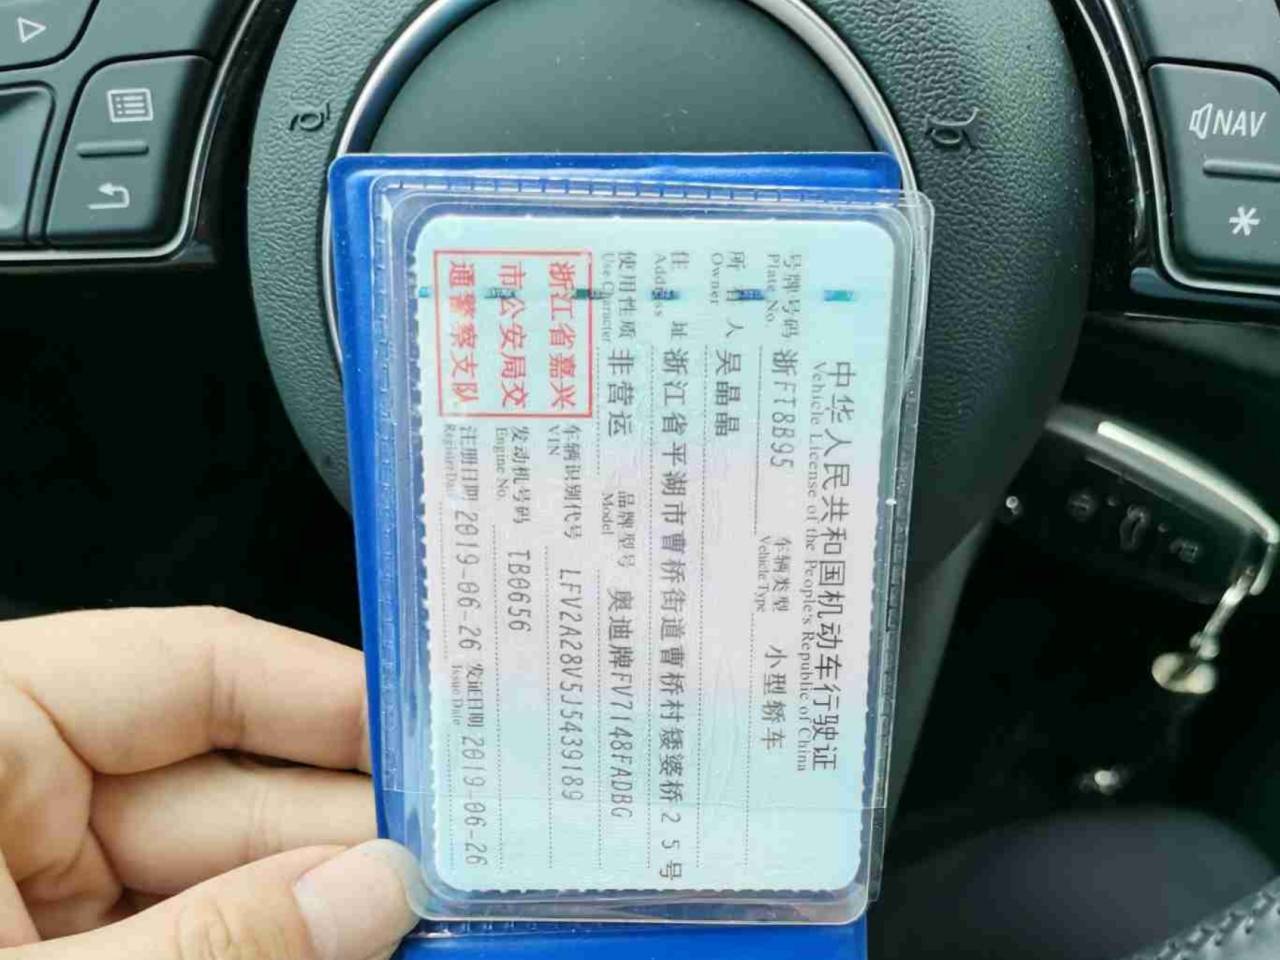 中华人民共和国机动车行驶证
Vehicle License of the People's Republic of China
号牌号码 浙FT8B95 车辆类型 小型轿车
Plate No. Vehicle Type
所有人 吴晶晶
Owner
住址 浙江省平湖市曹桥街道曹桥村矮婆桥25号
Address
使用性质 非营运 品牌型号 奥迪牌FV7148FADBG
Use Character Model
浙江省嘉兴
市公安局交
通警察支队
车辆识别代号 LFV2A28V5J5439189
VIN
发动机号码 TB0656
Engine No.
注册日期 2019-06-26 发证日期 2019-06-26
Register Date Issue Date
NAV